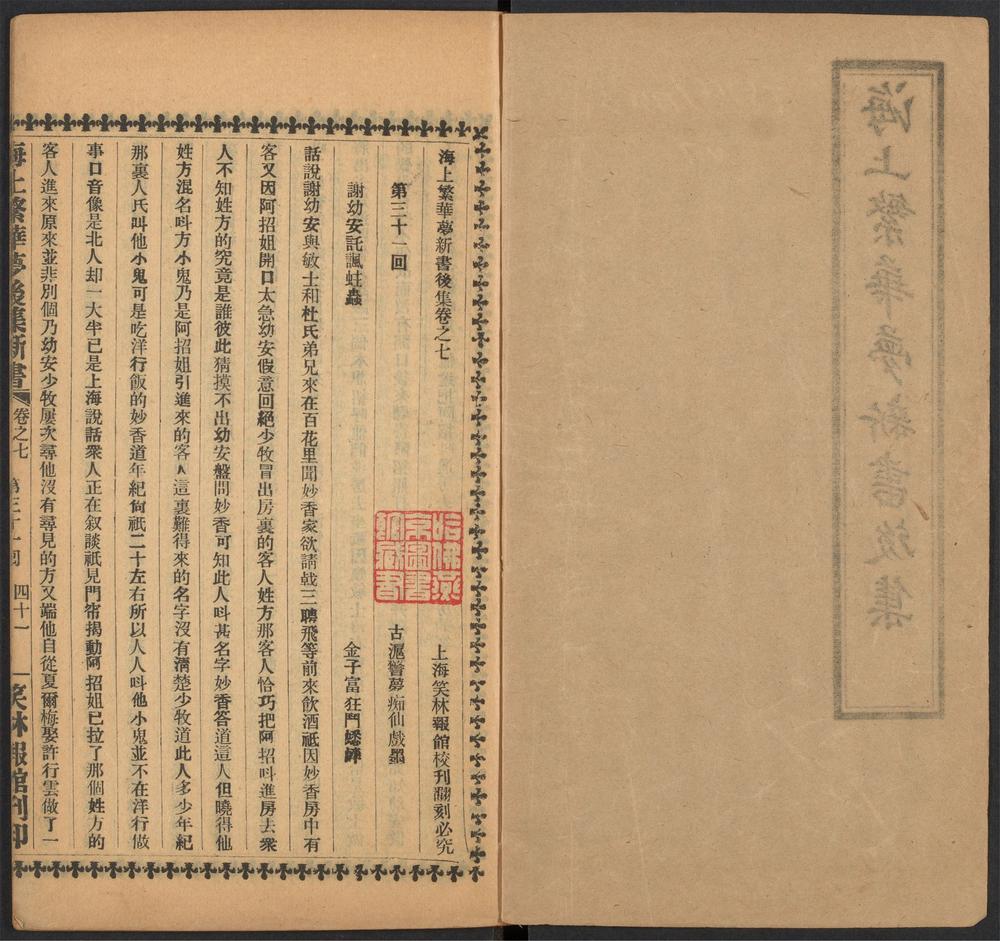 海上繁華夢新書後集
海上繁華夢新書後集卷之七 上海笑林報館校刊翻刻必究
第三十一回 古滬警夢痴仙戲墨
謝幼安託諷蛀蟲 金子富狂鬥蟋蟀
話說謝幼安與敏士和杜氏弟兄來在百花里聞妙香家欲請戟三聘飛等前來飲酒祇因妙香房中有
客又因阿招姐開口太急幼安假意回絕少牧冒出房裏的客人姓方那客人恰巧把阿招呌進房去衆
人不知姓方的究竟是誰彼此猜摸不出幼安盤問妙香可知此人呌甚名字妙香答道這人但曉得他
姓方混名呌方小鬼乃是阿招姐引進來的客人這裏難得來的名字沒有清楚少牧道此人多少年紀
那裏人氏叫他小鬼可是吃洋行飯的妙香道年紀尙祇二十左右所以人人呌他小鬼並不在洋行做
事口音像是北人却一大半已是上海說話衆人正在叙談祇見門帘揭動阿招姐已拉了那個姓方的
客人進來原來並非別個乃幼安少牧屢次尋他沒有尋見的方又端他自從夏爾梅娶許行雲做了一
海上繁華夢後集新書 卷之七 第三十一回 四十一 笑林報館刊印
哈佛燕
京圖書
館藏書